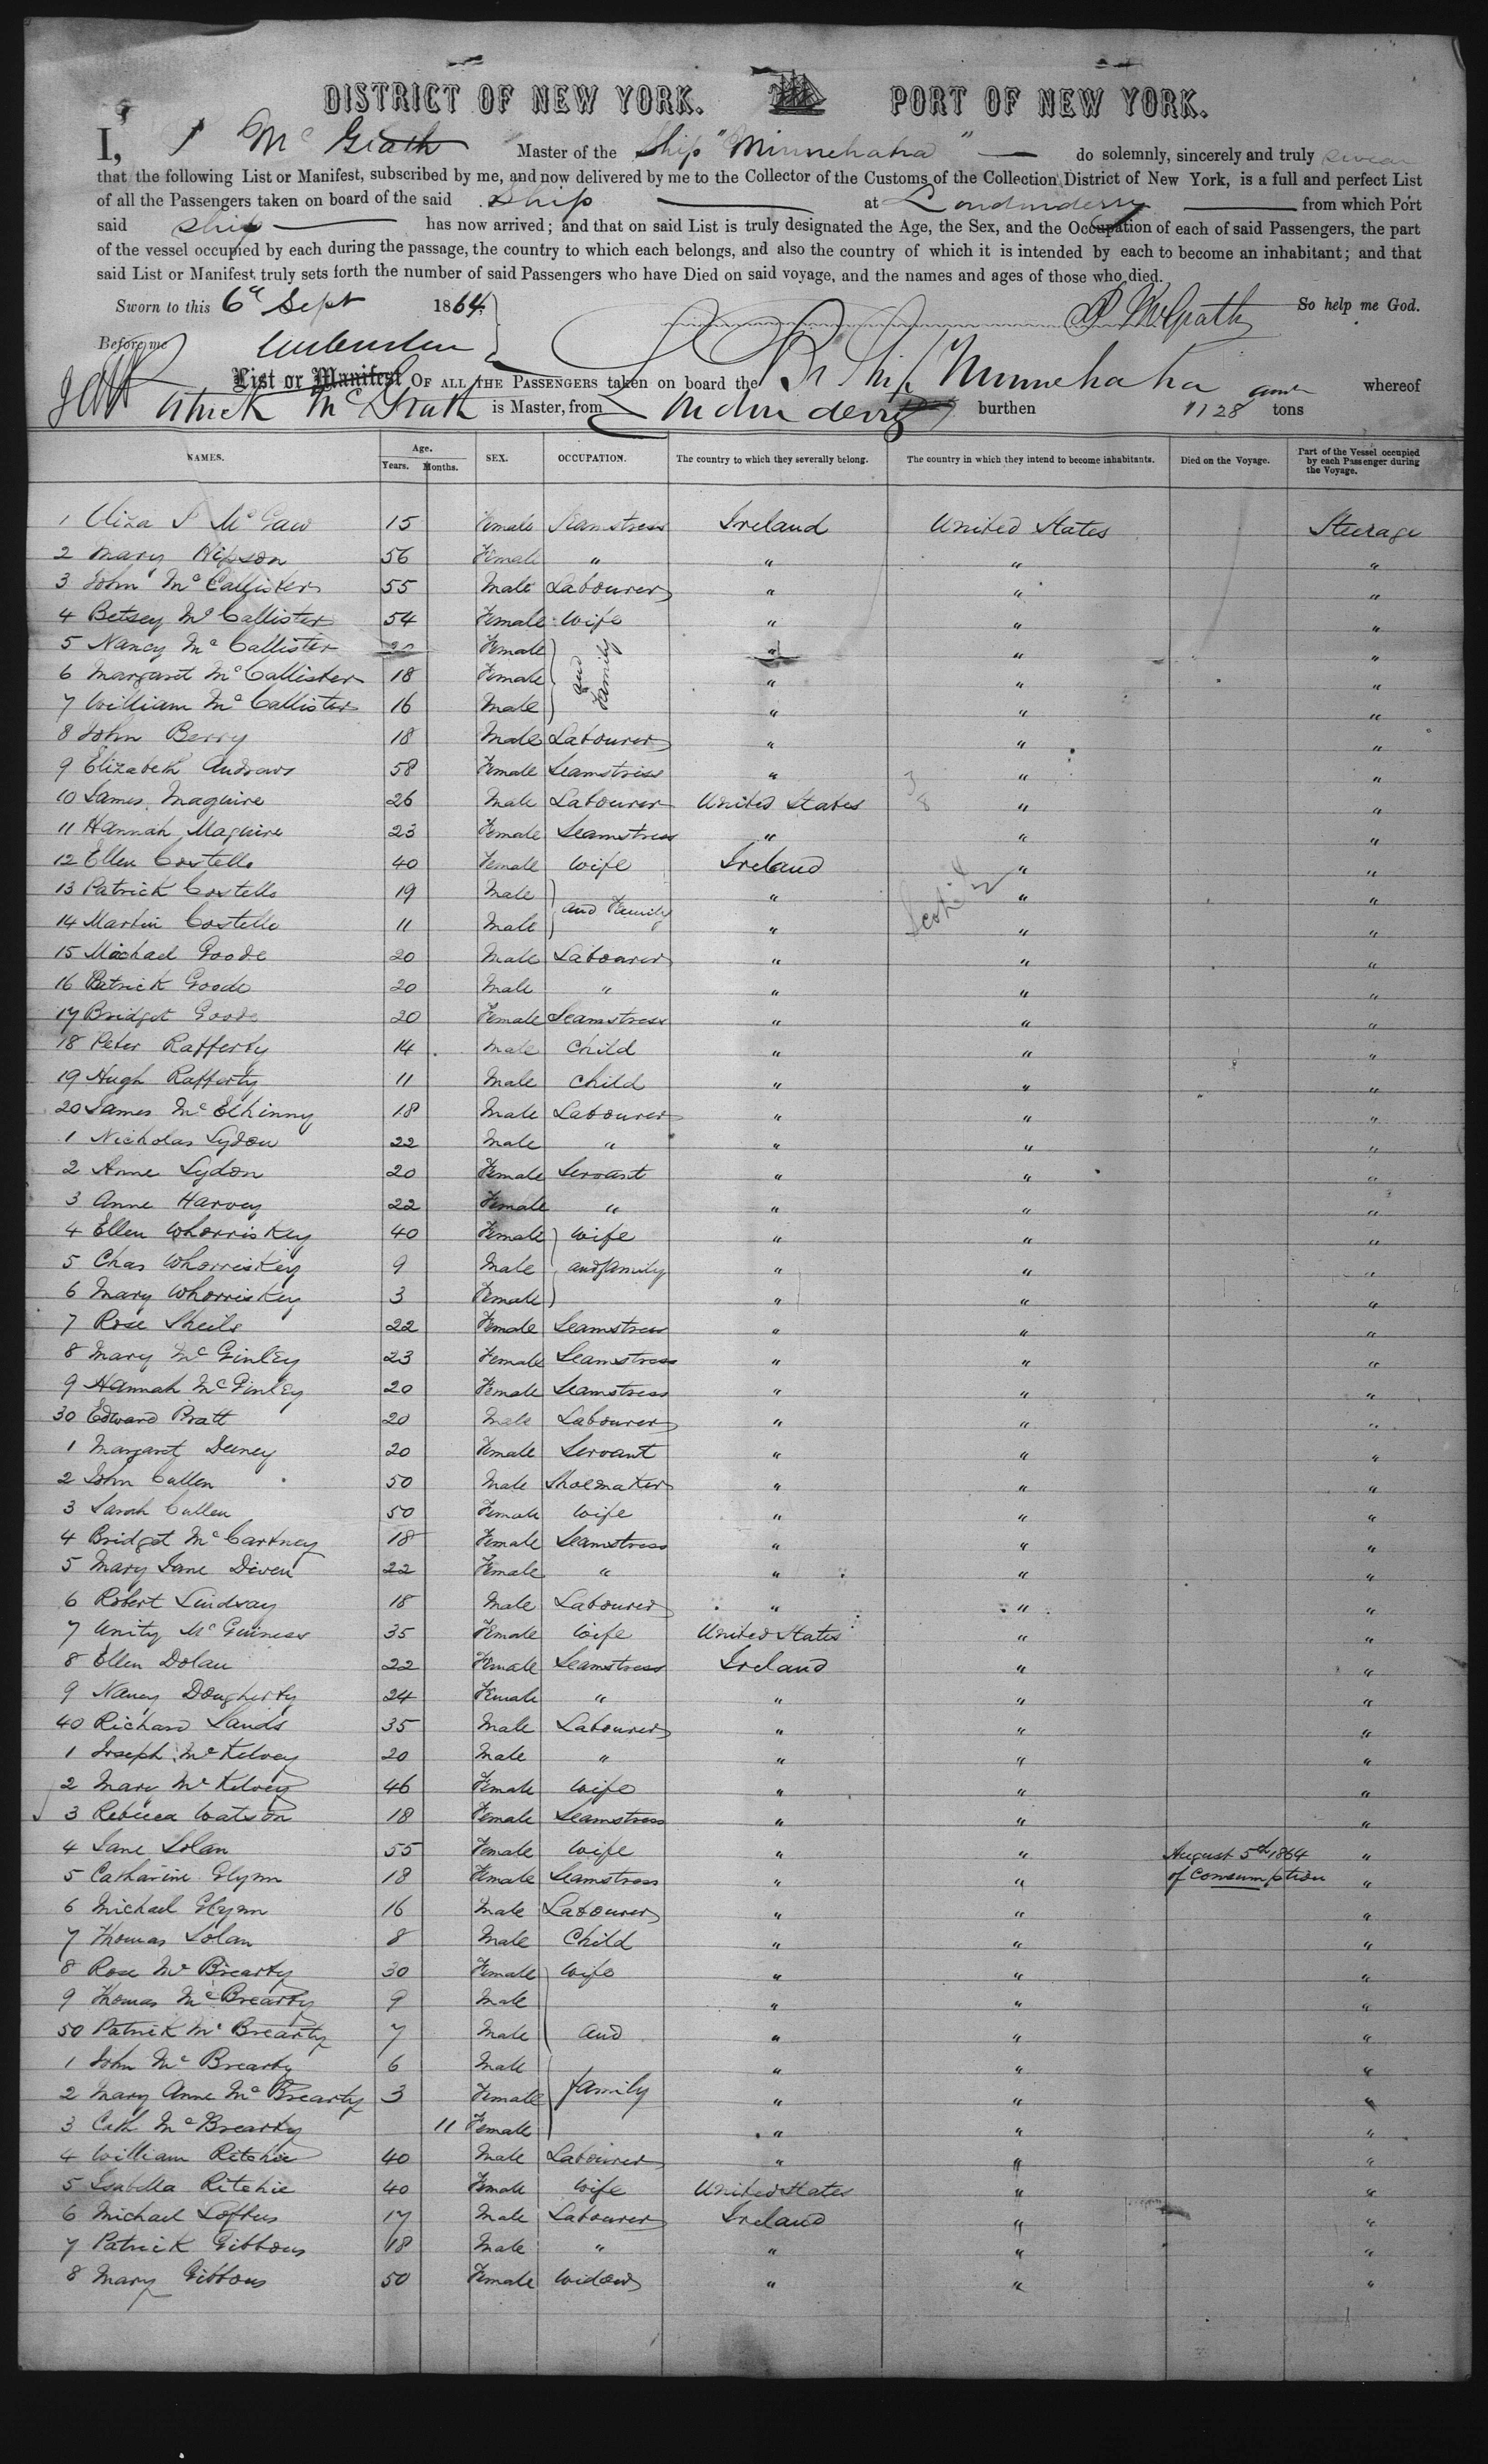 DISTRICT OF NEW YORK. PORT OF NEW YORK.
I, P Mc Grath Master of the Ship "Minnehaha" do solemnly, sincerely and truly swear
that the following List or Manifest, subscribed by me, and now delivered by me to the Collector of the Customs of the Collection District of New York, is a full and perfect List
of all the Passengers taken on board of the said Ship at Londonderry from which Port
said Ship has now arrived; and that on said List is truly designated the Age, the Sex, and the Occupation of each of said Passengers, the part
of the vessel occupied by each during the passage, the country to which each belongs, and also the country of which it is intended by each to become an inhabitant; and that
said List or Manifest truly sets forth the number of said Passengers who have Died on said voyage, and the names and ages of those who died.
Sworn to this 6th Sept 1864 P McGrath So help me God.
Before me
List or Manifest OF ALL THE PASSENGERS taken on board the Br Ship Minnehaha whereof
Patrick McGrath is Master, from Londonderry burthen 1128 tons
NAMES. Age. Years. Months. SEX. OCCUPATION. The country to which they severally belong. The country in which they intend to become inhabitants. Died on the Voyage. Part of the Vessel occupied by each Passenger during the Voyage.
1 Eliza J McGaw 15 Female Seamstress Ireland United States Steerage
2 Mary Hipson 56 Female " " " "
3 John McCallister 55 Male Labourer " " "
4 Betsey McCallister 54 Female Wife " " "
5 Nancy McCallister 20 Female and family " " "
6 Margaret McCallister 18 Female " " "
7 William McCallister 16 Male " " "
8 John Berry 18 Male Labourer " " "
9 Elizabeth Andrews 58 Female Seamstress " " "
10 James Maguire 26 Male Labourer United States " "
11 Hannah Maguire 23 Female Seamstress " " "
12 Ellen Costello 40 Female Wife Ireland " "
13 Patrick Costello 19 Male and Family " " "
14 Martin Costello 11 Male " " "
15 Michael Goode 20 Male Labourer " " "
16 Patrick Goode 20 Male " " " "
17 Bridget Goode 20 Female Seamstress " " "
18 Peter Rafferty 14 Male Child " " "
19 Hugh Rafferty 11 Male Child " " "
20 James McElhinny 18 Male Labourer " " "
1 Nicholas Lydon 22 Male " " " "
2 Anne Lydon 20 Female Servant " " "
3 Anne Harvey 22 Female " " " "
4 Ellen Whorriskey 40 Female Wife " " "
5 Chas Whorriskey 9 Male and family " " "
6 Mary Whorriskey 3 Female " " "
7 Rose Sheils 22 Female Seamstress " " "
8 Mary McGinley 23 Female Seamstress " " "
9 Hannah McGinley 20 Female Seamstress " " "
30 Edward Pratt 20 Male Labourer " " "
1 Margaret Deeney 20 Female Servant " " "
2 John Cullen 50 Male Shoemaker " " "
3 Sarah Cullen 50 Female Wife " " "
4 Bridget McCartney 18 Female Seamstress " " "
5 Mary Jane Diven 22 Female " " " "
6 Robert Lindsay 18 Male Labourer " " "
7 Unity McGuiness 35 Female Wife United States " "
8 Ellen Dolan 22 Female Seamstress Ireland " "
9 Nancy Dougherty 24 Female " " " "
40 Richard Sands 35 Male Labourer " " "
1 Joseph McKelvey 20 Male " " " "
2 Mary McKelvey 46 Female Wife " " "
3 Rebecca Watson 18 Female Seamstress " " "
4 Jane Solan 55 Female Wife " " August 5th 1864 "
5 Catharine Glynn 18 Female Seamstress " " of Consumption "
6 Michael Glynn 16 Male Labourer " " "
7 Thomas Solan 8 Male Child " " "
8 Rose McBrearty 30 Female Wife " " "
9 Thomas McBrearty 9 Male " " "
50 Patrick McBrearty 7 Male and " " "
1 John McBrearty 6 Male " " "
2 Mary Anne McBrearty 3 Female family " " "
3 Cath McBrearty 11 Female " " "
4 William Ritchie 40 Male Labourer " " "
5 Isabella Ritchie 40 Female Wife United States " "
6 Michael Loftus 17 Male Labourer Ireland " "
7 Patrick Gibbons 18 Male " " " "
8 Mary Gibbons 50 Female Widow " " "